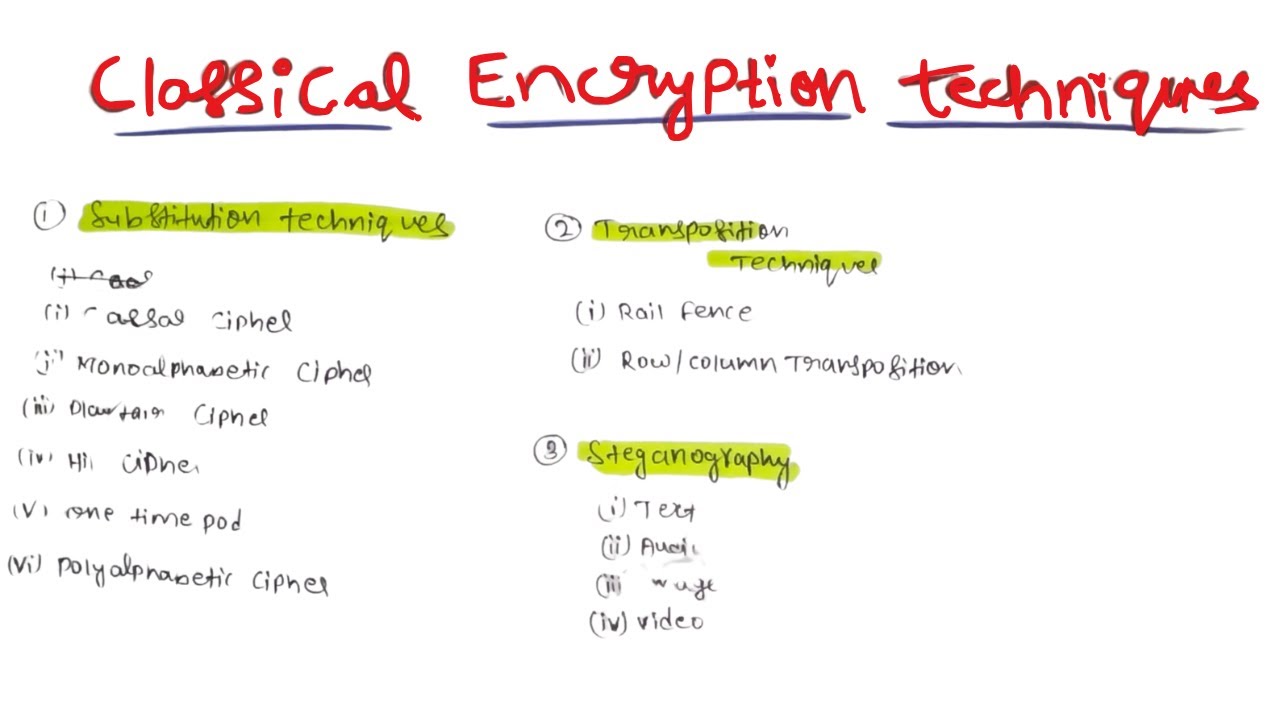 Classical Encryption techniques
① Substitution techniques
(i) Caesar Cipher
(ii) Monoalphabetic Cipher
(iii) Cipher
(iv) Cipher
(v) one time pad
(vi) Polyalphabetic Cipher
② Transposition
Techniques
(i) Rail fence
(ii) Row/column Transposition
③ Steganography
(i) Text
(ii) Audio
(iii)
(iv) video